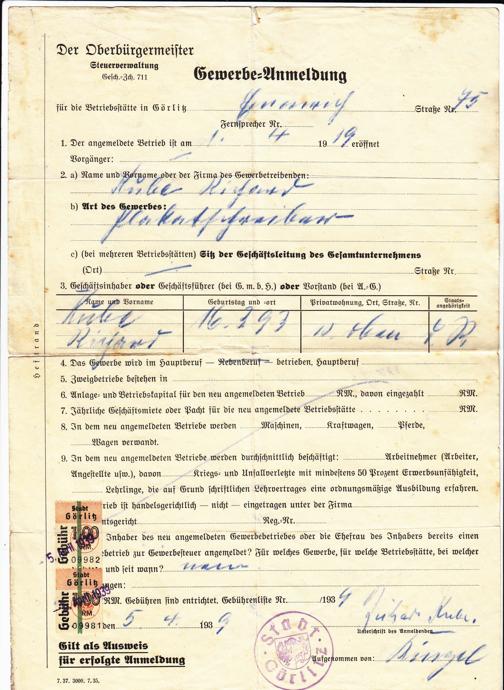 Der Oberbürgermeister
Steuerverwaltung
Gesch.-Zch. 711
Gewerbe-Anmeldung
für die Betriebstätte in Görlitz Straße Nr. 75
Fernsprecher Nr.
1. Der angemeldete Betrieb ist am 1. 4 1919 eröffnet
Vorgänger: —
2. a) Name und Vorname oder der Firma des Gewerbetreibenden:
Kube Richard
b) Art des Gewerbes:
Plakatschreiber
c) (bei mehreren Betriebstätten) Sitz der Geschäftsleitung des Gesamtunternehmens
(Ort) — Straße Nr.
3. Geschäftsinhaber oder Geschäftsführer (bei G. m. b. H.) oder Vorstand (bei A.-G.)
Name und Vorname Geburtstag und -ort Privatwohnung, Ort, Straße, Nr. Staats-
angehörigkeit
Kube 16. 2 93 w. oben
Richard
Heftrand
4. Das Gewerbe wird im Hauptberuf — Nebenberuf — betrieben, Hauptberuf
5. Zweigbetriebe bestehen in
6. Anlage- und Betriebskapital für den neu angemeldeten Betrieb RM., davon eingezahlt RM.
7. Jährliche Geschäftsmiete oder Pacht für die neu angemeldete Betriebstätte RM.
8. In dem neu angemeldeten Betriebe werden Maschinen, Kraftwagen, Pferde,
Wagen verwandt.
9. In dem neu angemeldeten Betriebe werden durchschnittlich beschäftigt: Arbeitnehmer (Arbeiter,
Angestellte usw.), davon Kriegs- und Unfallverletzte mit mindestens 50 Prozent Erwerbsunfähigkeit,
Lehrlinge, die auf Grund schriftlichen Lehrvertrages eine ordnungsmäßige Ausbildung erfahren.
rieb ist handelsgerichtlich — nicht — eingetragen unter der Firma
mtsgericht Reg.-Nr.
Inhaber des neu angemeldeten Gewerbebetriebes oder die Ehefrau des Inhabers bereits einen
betrieb zur Gewerbesteuer angemeldet? Für welches Gewerbe, für welche Betriebstätte, bei welcher
und seit wann? nein
ngen:
RM. Gebühren sind entrichtet. Gebührenliste Nr. /1939
den 5. 4. 1939 Richard Kube.
Unterschrift des Anmeldenden
Gilt als Ausweis
für erfolgte Anmeldung
Aufgenommen von:
7. 37. 3000. 7. 35.
Stadt
Görlitz
Gebühr
1.00
RM.
09982
Stadt
Görlitz
Gebühr
RM.
09981
Stadt Görlitz